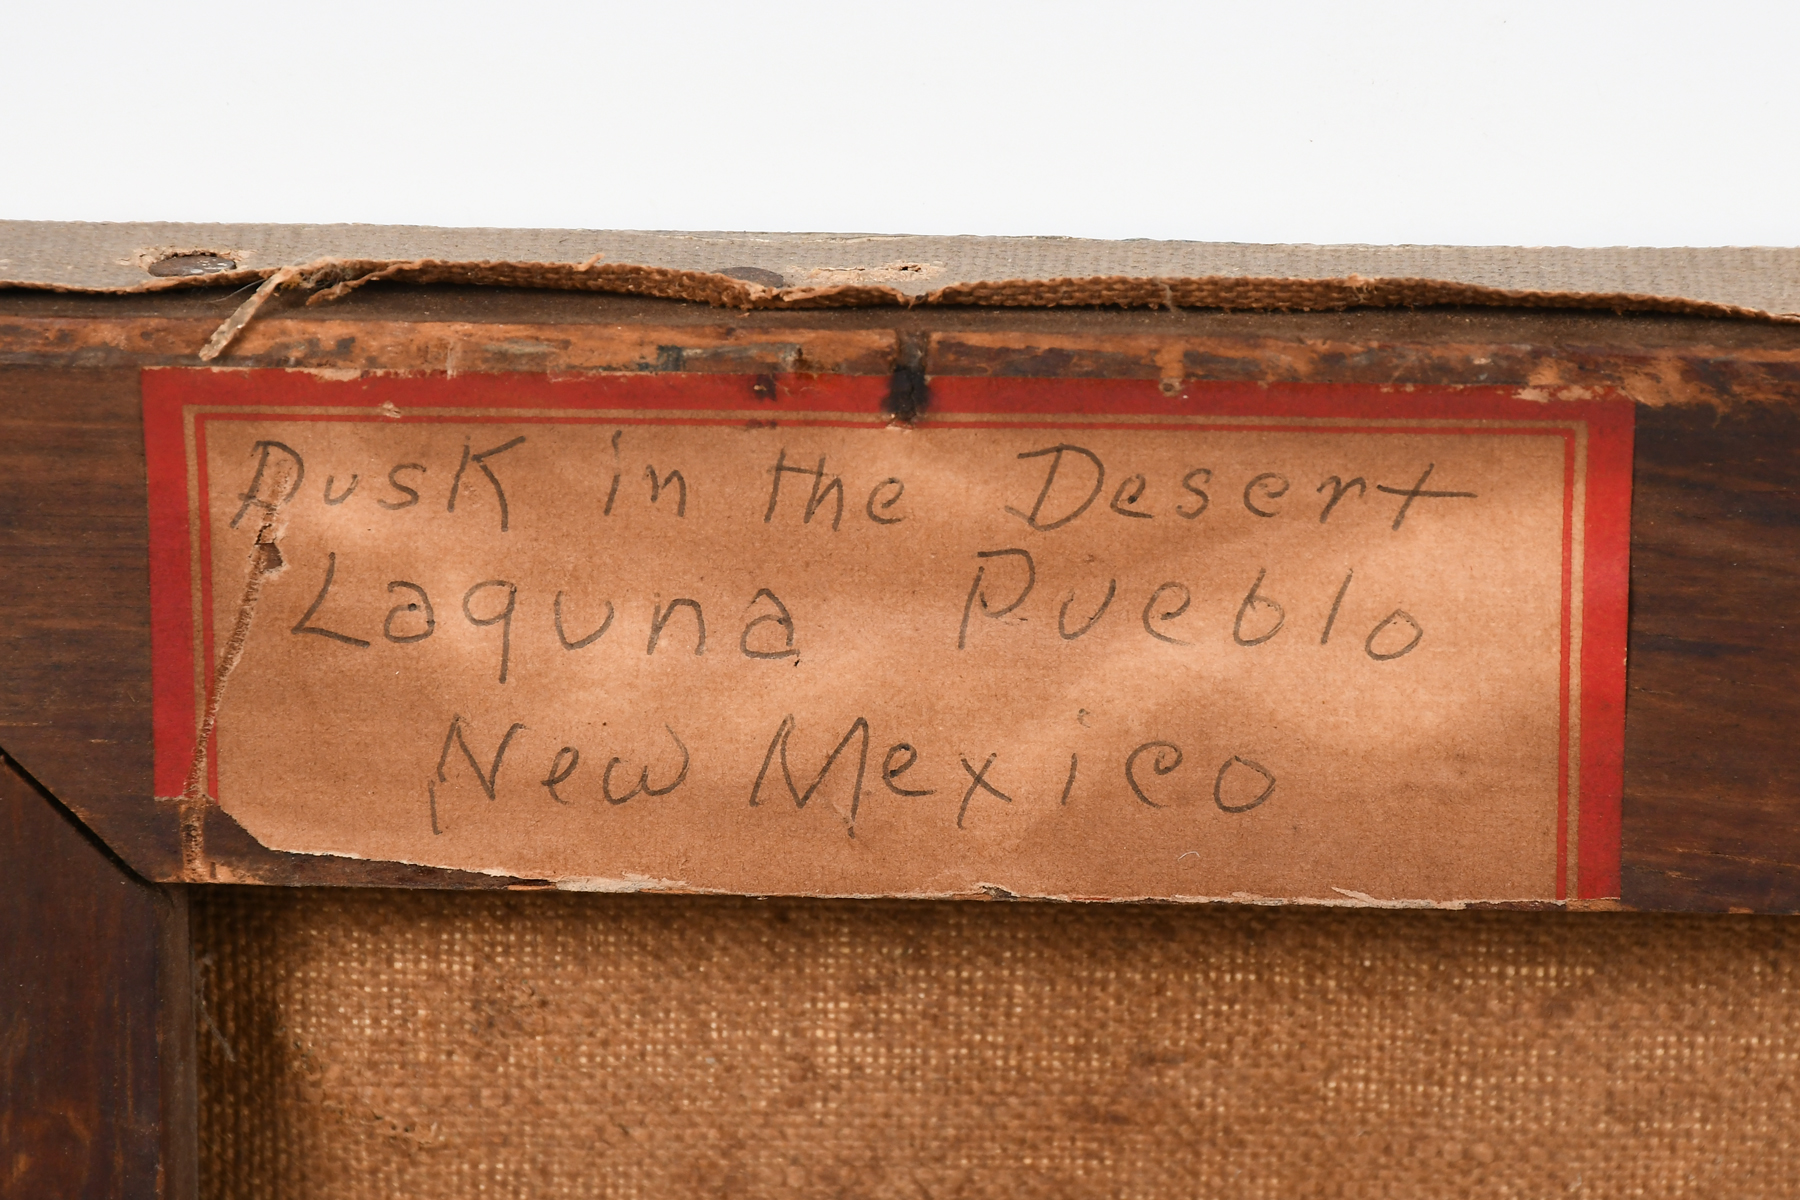 Dusk in the Desert
Laguna Pueblo
New Mexico